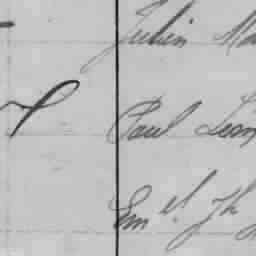 Julien Ma
Paul Leon
Em el. Jh